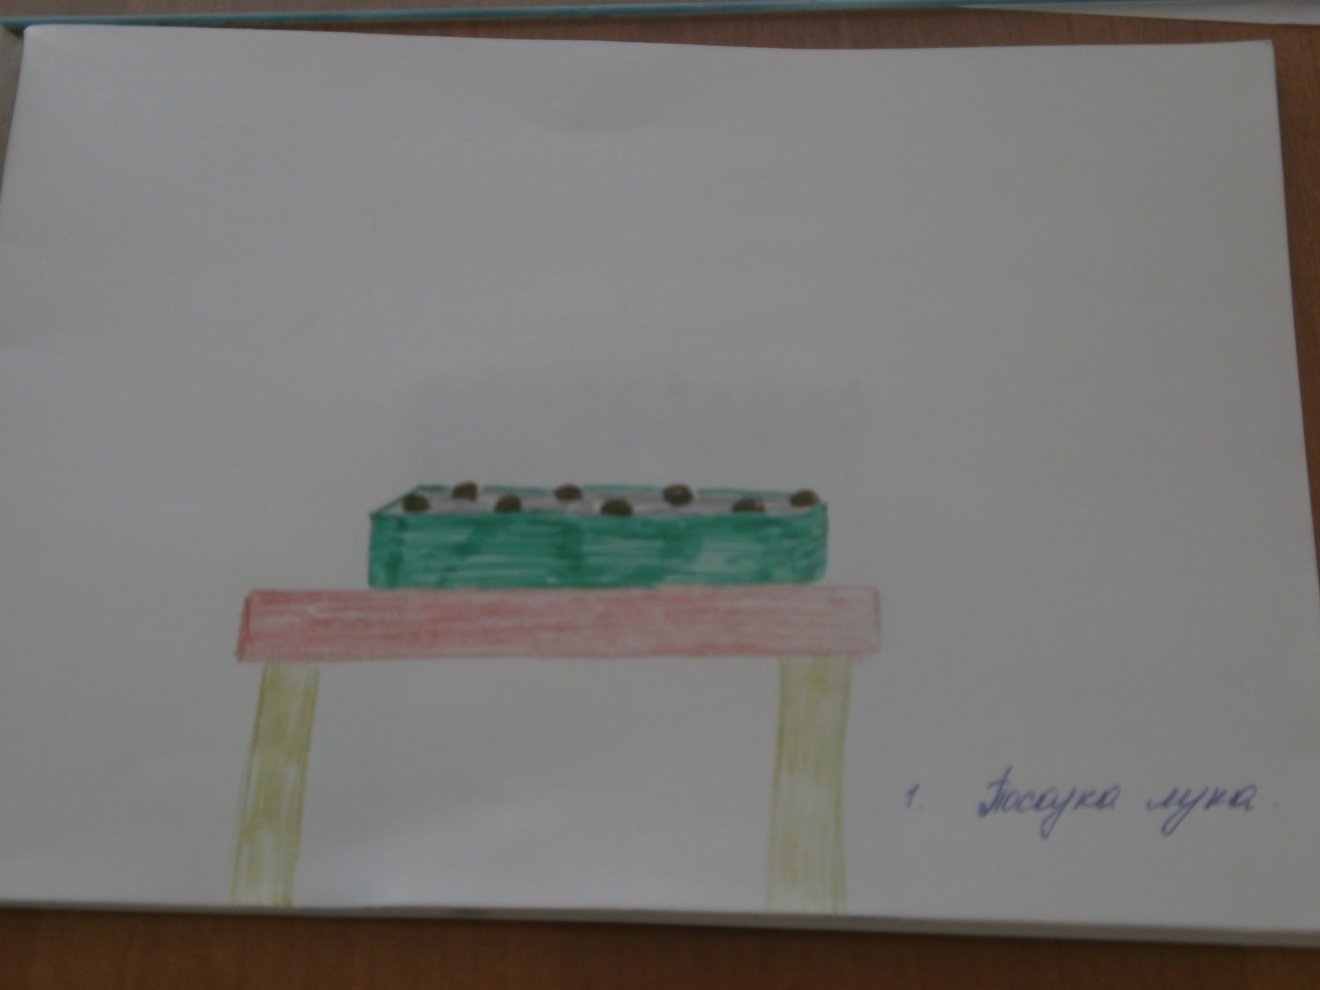 1 Посадка лука.